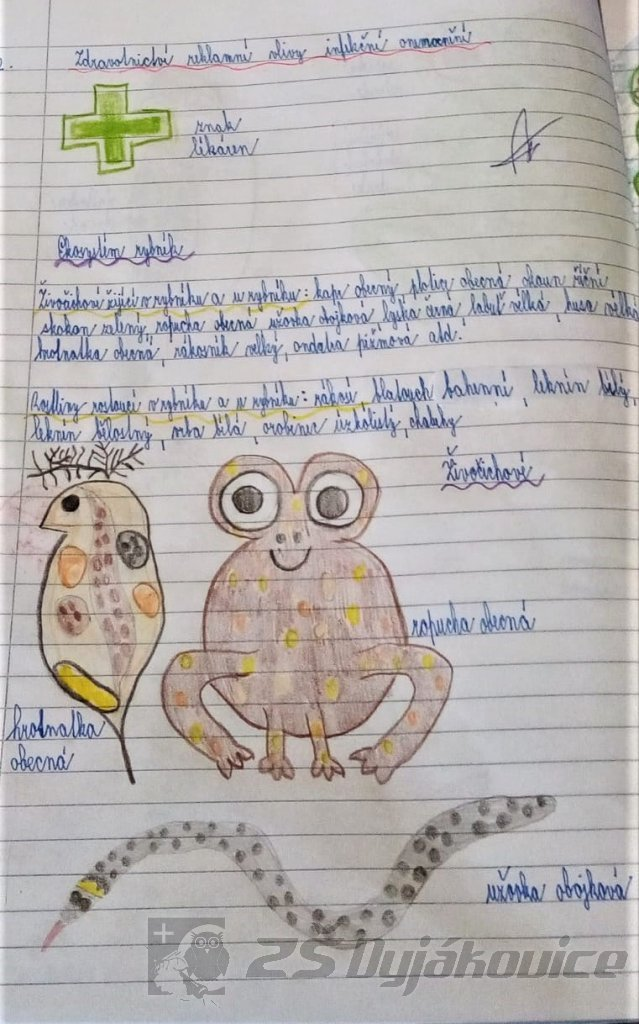 Zdravotnictví reklamní vlivy infekční onemocnění
znak
lékáren
Ekosystém rybník
Živočichové žijící v rybníku a u rybníku: kapr obecný, plotice obecná, okoun říční
skokan zelený, ropucha obecná užovka obojková lyska černá labuť velká, husa velká
hrotnatka obecná, rákosník velký, ondatra pižmová atd.
Rostliny rostoucí v rybníku a u rybníku: rákosí, blatouch bahenní, leknín bílý,
leknín bělostný, vrba bílá, orobinec úzkolistý, chaluhy
Živočichové
ropucha obecná
hrotnatka
obecná
užovka obojková
ZŠ Dyjákovice